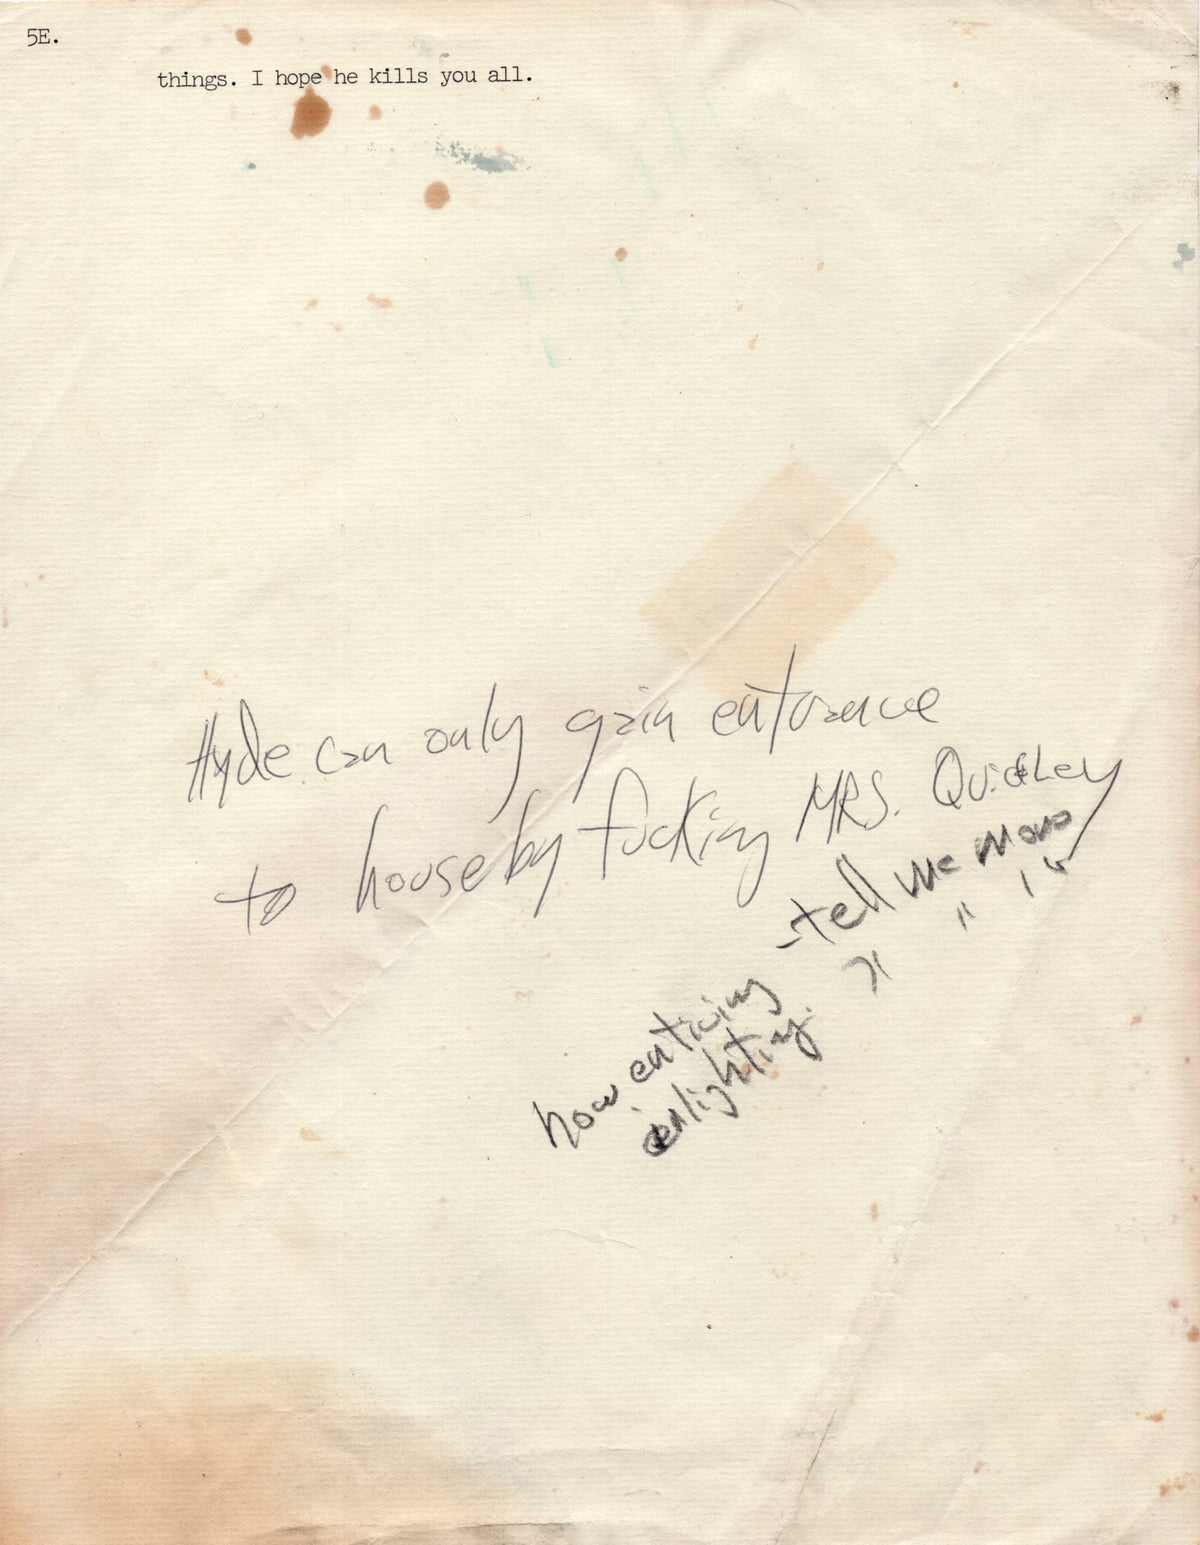 5E.
things. I hope he kills you all.
Hyde can only gain entrance
to house by fucking MRS. Quickley
-tell me more
" " " "
how enticing
enlighting.